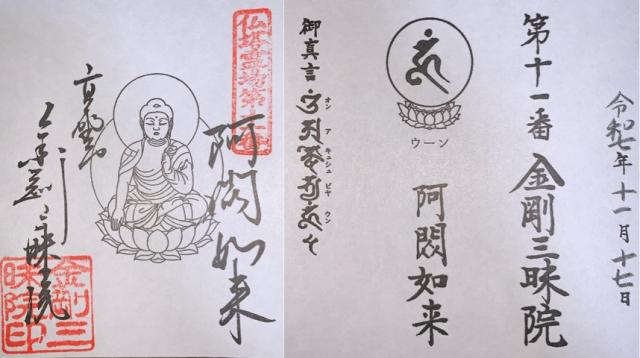 仏塔霊場第十一番
阿閦如来
高野山
金剛三昧院
金剛三昧院印
令和七年十一月十七日
第十一番 金剛三昧院
ウーン
阿閦如来
御真言
オン ア キュシュ ビヤ ウン